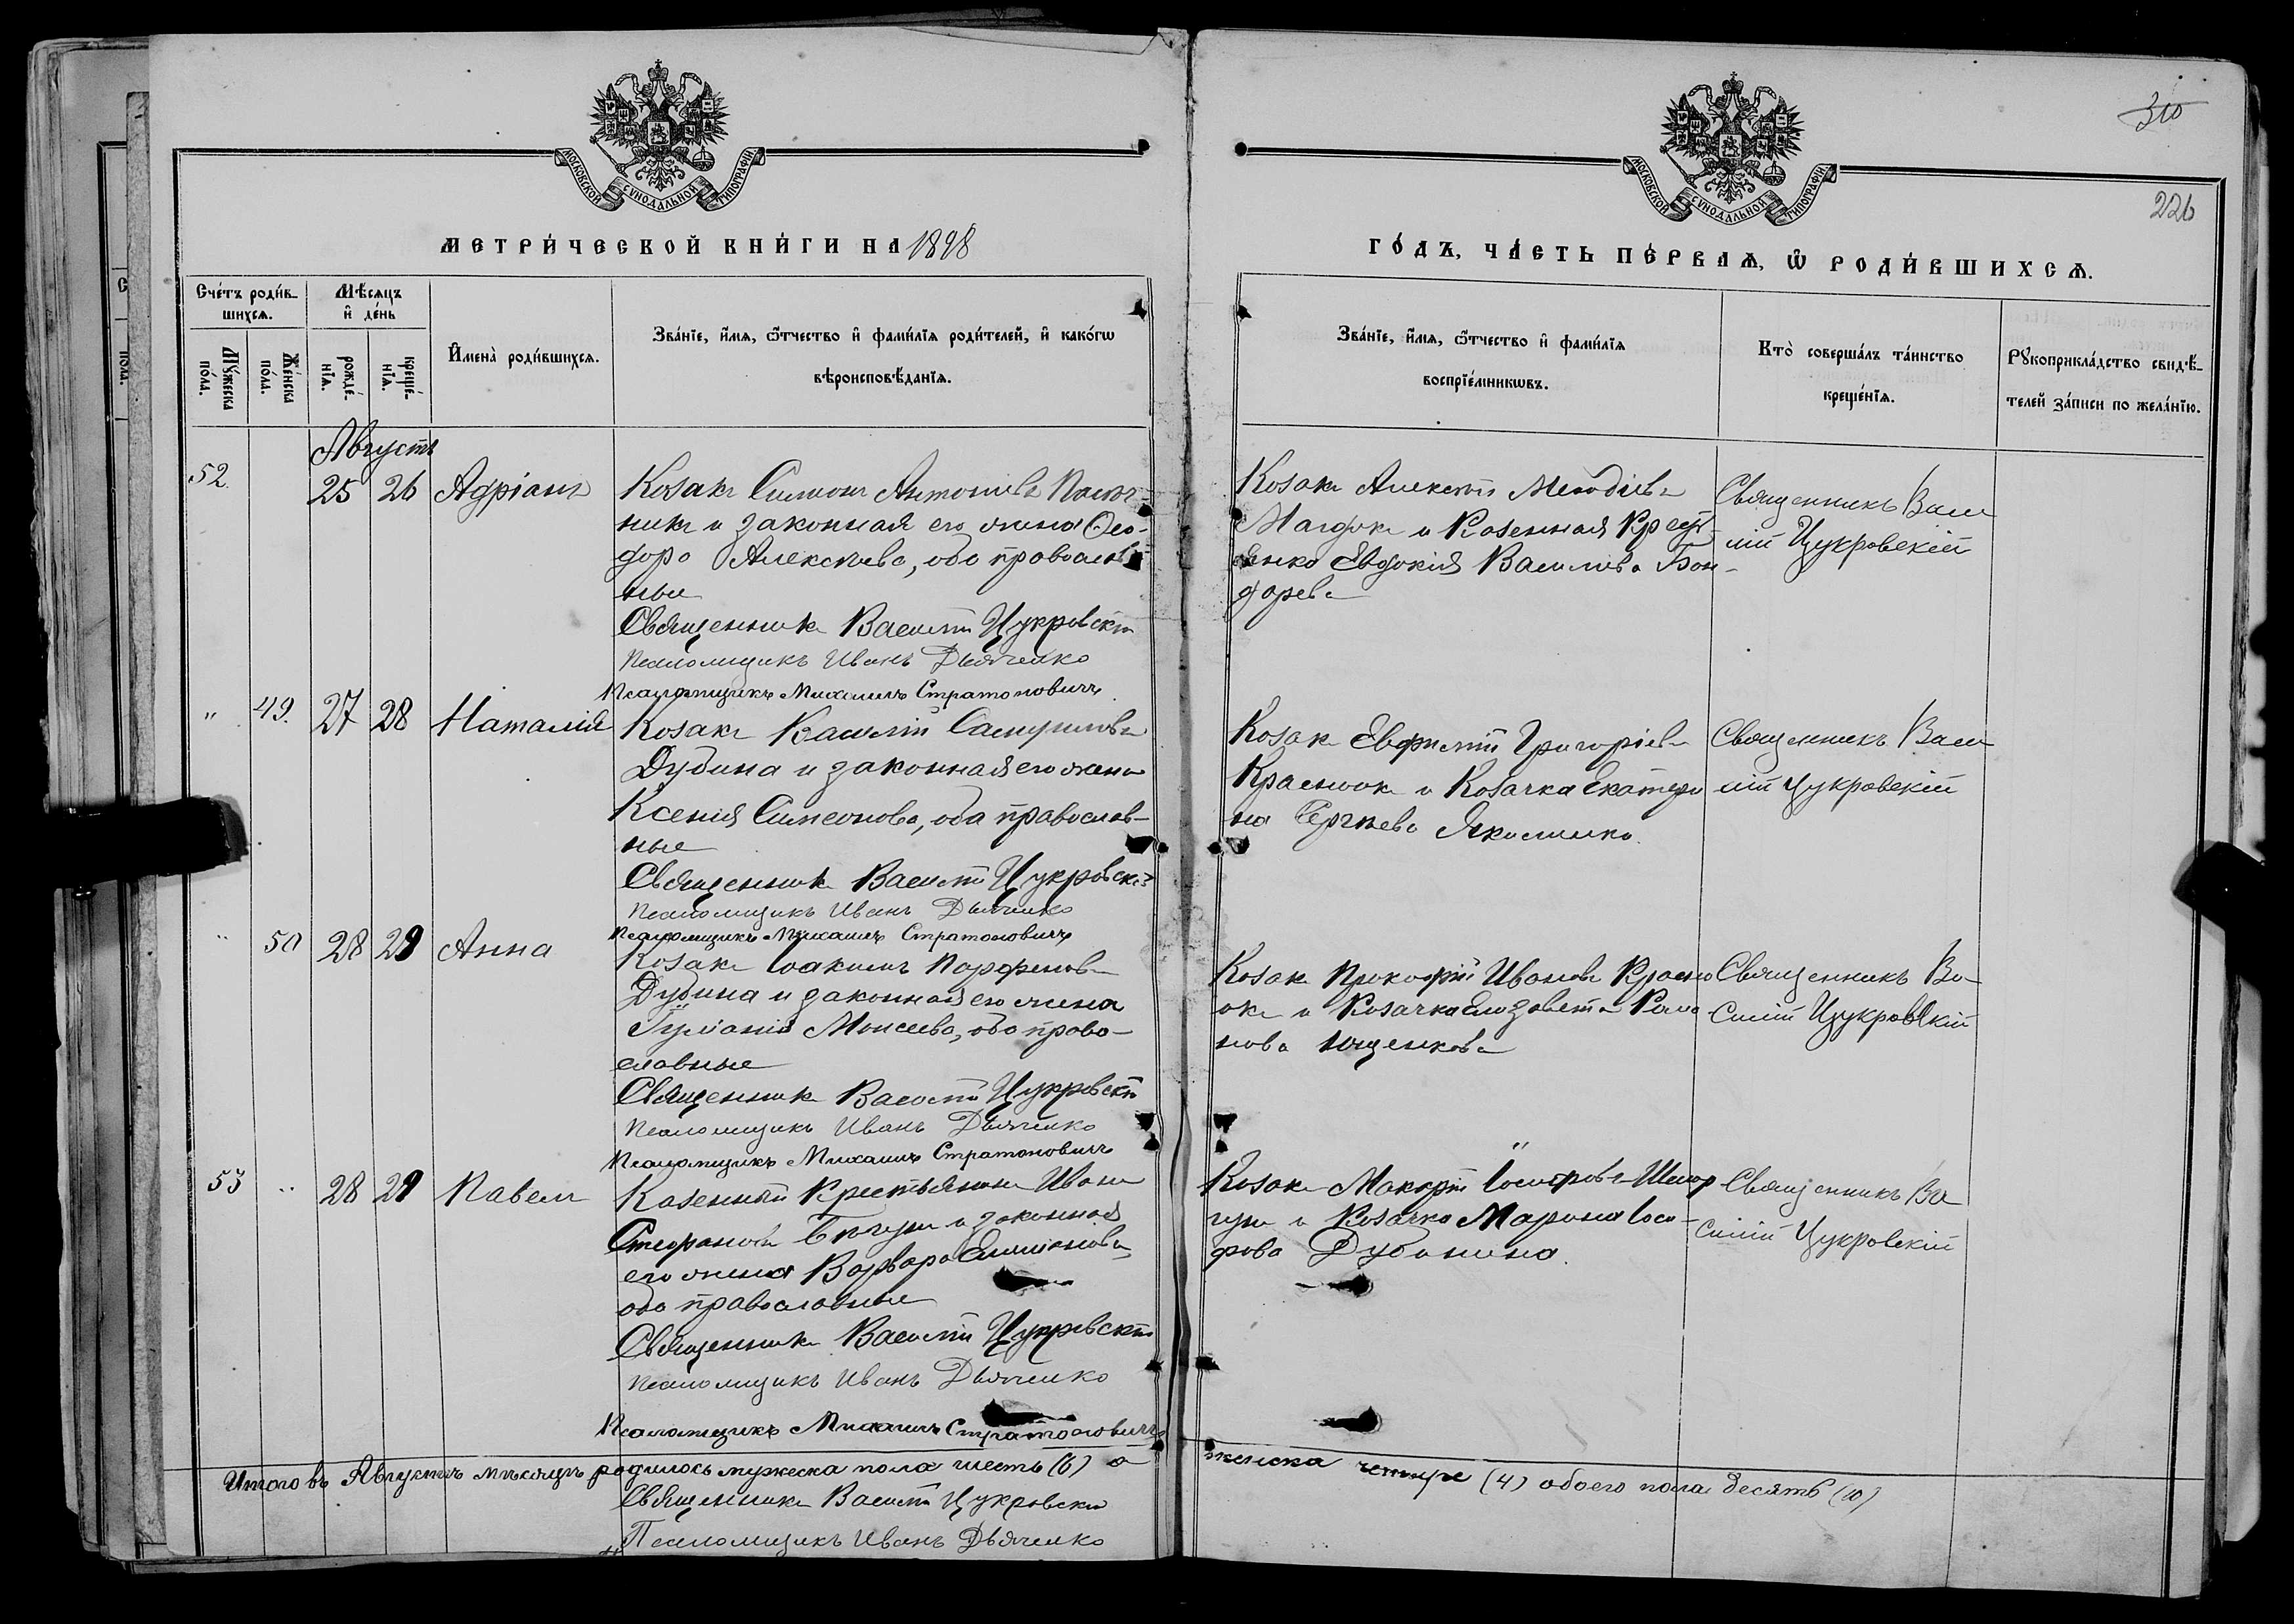 310
226
МОСКОВСКОЙ СѴНОДАЛЬНОЙ ТИПОГРАФІИ
МОСКОВСКОЙ СѴНОДАЛЬНОЙ ТИПОГРАФІИ
МЕТРИ́ЧЕСКОЙ КНИ́ГИ НА 1898
ГО́ДЪ, ЧА́СТЬ ПЕ́РВАѦ, Ѡ҆ РОДИ́ВШИХСѦ.
Сче́тъ роди́в-
шихсѧ.
Мꙋ́жеска
по́ла.
Же́нска
по́ла.
Мѣ́сѧцъ
и҆ де́нь
рожде́-
нїѧ.
креще́-
нїѧ.
И҆мена̀ роди́вшихсѧ.
Зва́нїе, и҆́мѧ, ѻ҆́тчество и҆ фами́лїѧ роди́телей, и҆ како́гѡ
вѣроисповѣ́данїѧ.
Зва́нїе, и҆́мѧ, ѻ҆́тчество и҆ фами́лїѧ
воспрїе́мникѡвъ.
Кто̀ соверша́лъ та́инство
креще́нїѧ.
Рꙋкоприкла́дство свидѣ́-
телей за́писи по жела́нїю.
Августъ
52. 25 26 Адріанъ
Козакъ Симеонъ Антоніевъ
никъ и законная его жена Ѳео-
дора Алексѣева, оба православ-
ные
Священникъ Василій Цукровскій
Псаломщикъ Иванъ Дьяченко
Псаломщикъ Михаилъ Стратоновичъ
Козакъ Алексѣй Меѳодіевъ
и Казенная Кресть-
янка Евдокія Васильева Бон-
дарева
Священникъ Васи
лій Цукровскій
" 49. 27 28 Наталія
Козакъ Василій Самуиловъ
Дубина и законная его жена
Ксенія Симеонова, оба православ-
ные
Священникъ Василій Цукровскій
Псаломщикъ Иванъ Дьяченко
Псаломщикъ Михаилъ Стратоновичъ
Козакъ Евфимій Григоріевъ
Краснокъ и Козачка Екатери
на Сергѣева Якименко.
Священникъ Васи
лій Цукровскій
" 50 28 29 Анна
Козакъ Іоакимъ Парфеновъ
Дубина и законная его жена
Іуліанія Моисеева, оба право-
славные
Священникъ Василій Цукровскій
Псаломщикъ Иванъ Дьяченко
Псаломщикъ Михаилъ Стратоновичъ
Козакъ Прокофій Ивановъ Красно
окъ и Козачка Елизавета Рома
нова Ющенкова
Священникъ Ва-
силій Цукровскій
53 " 28 29 Павелъ
Казенный Крестьянинъ Иванъ
Стефановъ и законная
его жена Варвара Емиліанова
оба православные
Священникъ Василій Цукровскій
Псаломщикъ Иванъ Дьяченко
Псаломщикъ Михаилъ Стратоновичъ
Козакъ Макарій Іосифовъ
и Козачка Марина Іоси-
фова Дубинина.
Священникъ Ва
силій Цукровскій
Итого въ Августѣ мѣсяцѣ родилось мужеска пола шесть (6) а
женска четыре (4) обоего пола десять (10)
Священникъ Василій Цукровскій
Псаломщикъ Иванъ Дьяченко